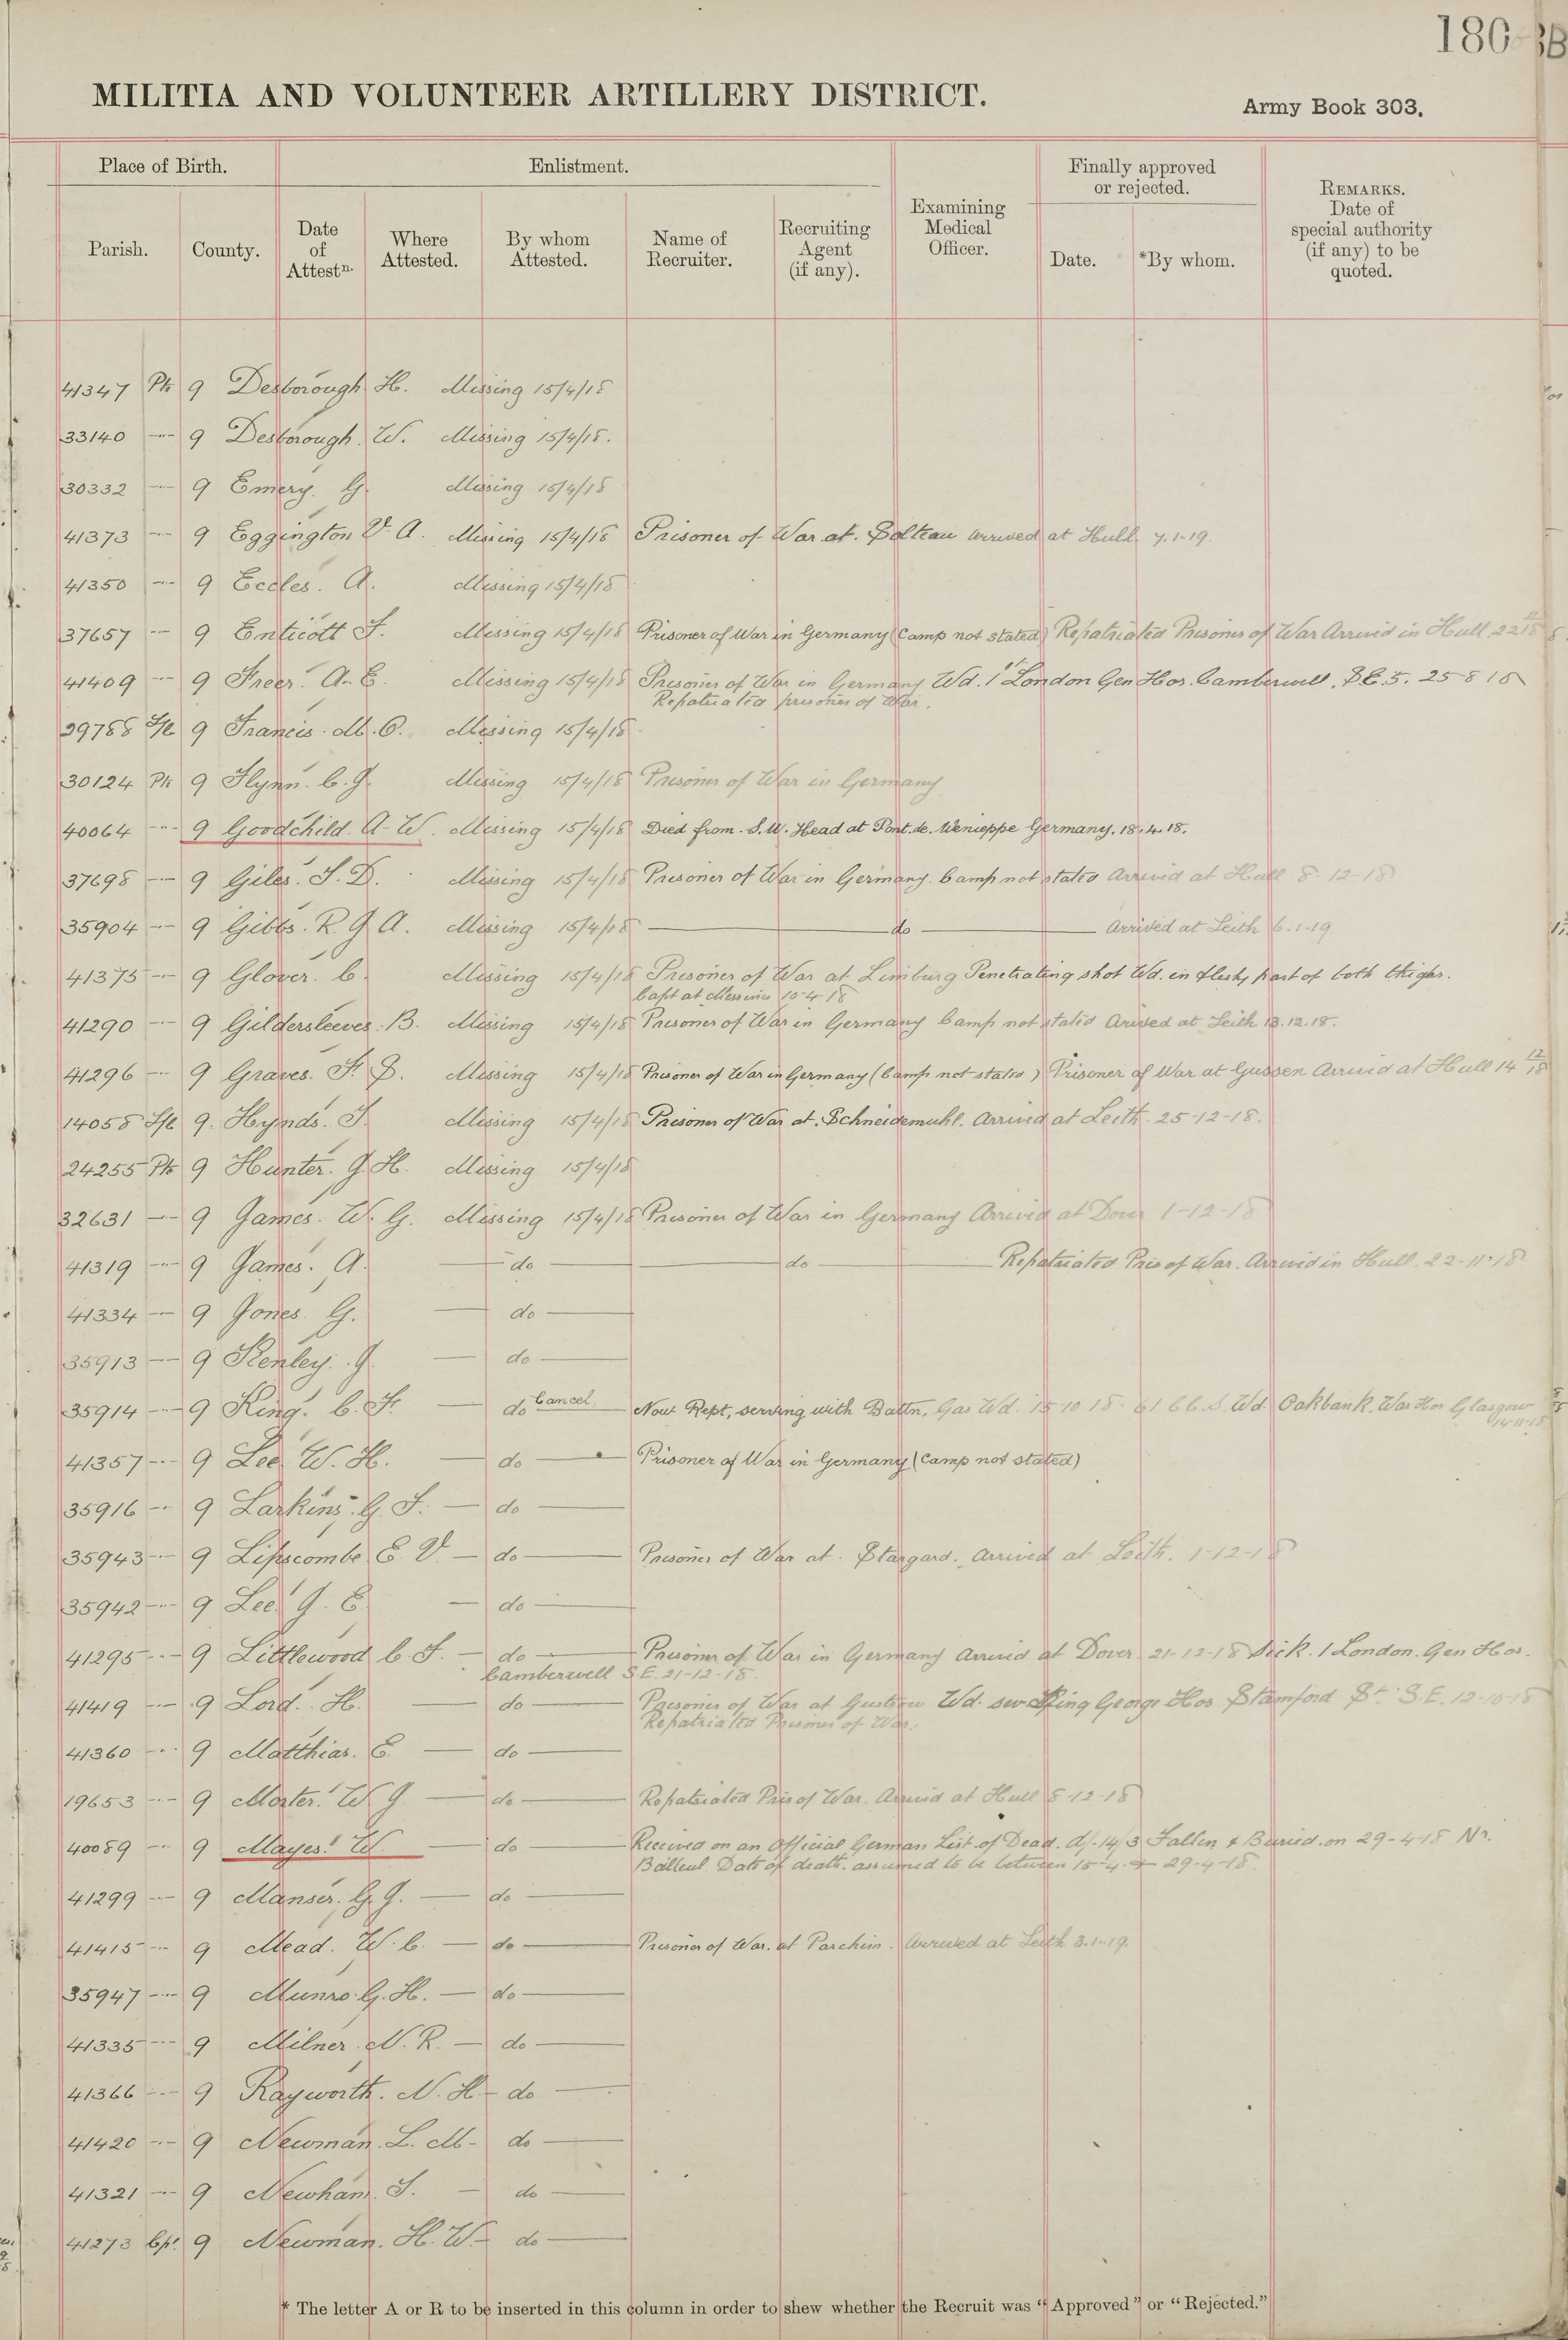 180
MILITIA AND VOLUNTEER ARTILLERY DISTRICT.
Army Book 303.
Place of Birth.
Enlistment.
Finally approved or rejected.
Parish.
County.
Date of Attestn.
Where Attested.
By whom Attested.
Name of Recruiter.
Recruiting Agent (if any).
Examining Medical Officer.
Date.
*By whom.
REMARKS. Date of special authority (if any) to be quoted.
41347 Pte 9 Desborough H. Missing 15/4/18
33140 -"- 9 Desborough. W. Missing 15/4/18.
30332 -"- 9 Emery. G. Missing 15/4/18
41373 -"- 9 Eggington V. A. Missing 15/4/18 Prisoner of War at. arrived at Hull 7.1.19.
41350 -"- 9 Eccles. A. Missing 15/4/18
37657 -"- 9 Enticott F. Missing 15/4/18 Prisoner of War in Germany (Camp not stated) Repatriated Prisoner of War Arrived in Hull 22
41409 -"- 9 Freer. A. E. Missing 15/4/18 Prisoner of War in Germany Wd. 1st London Gen Hos. Camberwell, S.E.5. 25-8 18
Repatriated prisoner of War.
29788 9 Francis. M. C. Missing 15/4/18
30124 Pte 9 Flynn. C. J. Missing 15/4/18 Prisoner of War in Germany
40064 -"- 9 Goodchild. A. W. Missing 15/4/18 Died from. S.W. Head at Pont. de. Nenieppe Germany. 18.4.18.
37698 -"- 9 Giles. S. D. Missing 15/4/18 Prisoner of War in Germany. Camp not stated Arrived at Hull 8-12-18
35904 -"- 9 Gibbs. R. J. A. Missing 15/4/18 do Arrived at Leith 6.1.19
41375 -"- 9 Glover. C. Missing 15/4/18 Prisoner of War at Limburg Penetrating shot Wd. in flesh, part of both thighs.
Capt at Messines 10-4-18
41290 -"- 9 Gildersleeves. B. Missing 15/4/18 Prisoner of War in Germany Camp not stated Arrived at Leith 13.12.18.
41296 -"- 9 Graves. F. Missing 15/4/18 Prisoner of War in Germany (Camp not stated) Prisoner of War at Gussen Arrived at Hull 14 12/18
14058 9. Hynds. J. Missing 15/4/18 Prisoner of War at. Schneidemuhl. Arrived at Leith. 25-12-18.
24255 Pte 9 Hunter. J. H. Missing 15/4/18
32631 -"- 9 James. W. G. Missing 15/4/18 Prisoner of War in Germany Arrived at Dover 1-12-18
41319 -"- 9 James. A. do do Repatriated Pris of War. Arrived in Hull. 22-11-18
41334 -"- 9 Jones. G. do
35913 -"- 9 Kenley. J. do
35914 -"- 9 King. C. F. do Cancel Now Rept, serving with Battn. Gas Wd. 15 10 18. 61 C.C.S. Wd Oakbank. War Hos Glasgow
14-11-18
41357 -"- 9 Lee W. H. do Prisoner of War in Germany (Camp not stated)
35916 -"- 9 Larkins. G. F. do
35943 -"- 9 Lipscombe E. V. do Prisoner of War at. Stargard. Arrived at Leith. 1-12-18
35942 -"- 9 Lee. J. E. do
41295 -"- 9 Littlewood C. F. do Prisoner of War in Germany Arrived at Dover 21-12-18 Sick. 1 London. Gen Hos.
Camberwell S.E. 21-12-18.
41419 -"- 9 Lord. H. do Prisoner of War at Gustrow Wd. sev King George Hos Stamford St. S.E. 12-10-18
Repatriated Prisoner of War.
41360 -"- 9 Matthias. E. do
19653 -"- 9 Morter. W. J. do Repatriated Pris of War. Arrived at Hull 8-12-18
40089 -"- 9 Mayes. W. do Received on an Official German List of Dead. Fallen & Buried. on 29-4-18 Nr.
Bailleul. Date of death. assumed to be between 15-4. & 29-4-18.
41299 -"- 9 Manser. G. J. do
41415 -"- 9 Mead. W. C. do Prisoner of War. at Parchim. Arrived at Leith 3.1.19.
35947 -"- 9 Munro. G. H. do
41335 -"- 9 Milner. N. R. do
41366 -"- 9 Rayworth. N. H. do
41420 -"- 9 Newman. L. M. do
41321 -"- 9 Newham. S. do
41273 Cpl. 9 Newman. H. W. do
* The letter A or R to be inserted in this column in order to shew whether the Recruit was "Approved" or "Rejected."